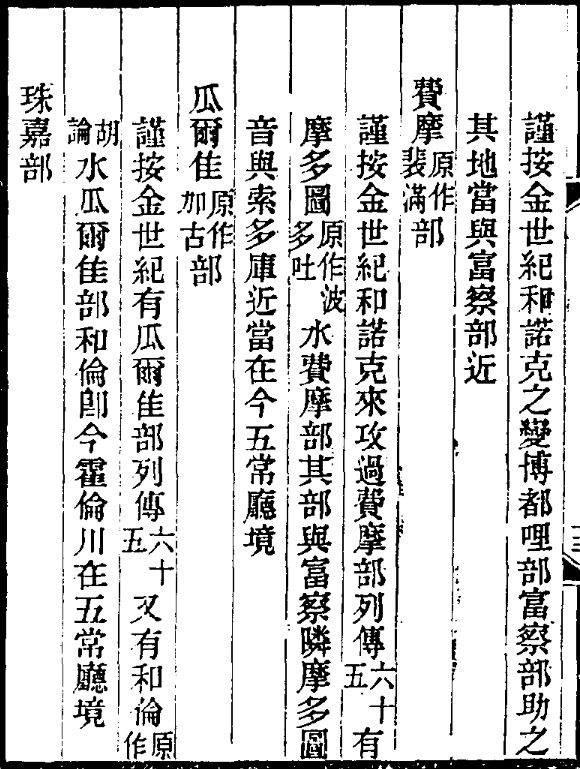 謹按金世紀和諾克之變博都哩部富察部助之
其地當與富察部近
費摩原作裴滿部
謹按金世紀和諾克來攻過費摩部列傳六十五有
摩多圖原作波多吐水費摩部其部與富察隣摩多圖
音與索多庫近當在今五常廳境
瓜爾佳原作加古部
謹按金世紀有瓜爾佳部列傳六十五又有和倫原作
胡論水瓜爾佳部和倫卽今霍倫川在五常廳境
珠嘉部